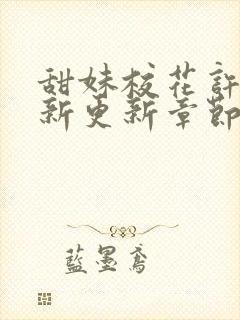 甜妹校花許
新更新章節
藍墨鳶